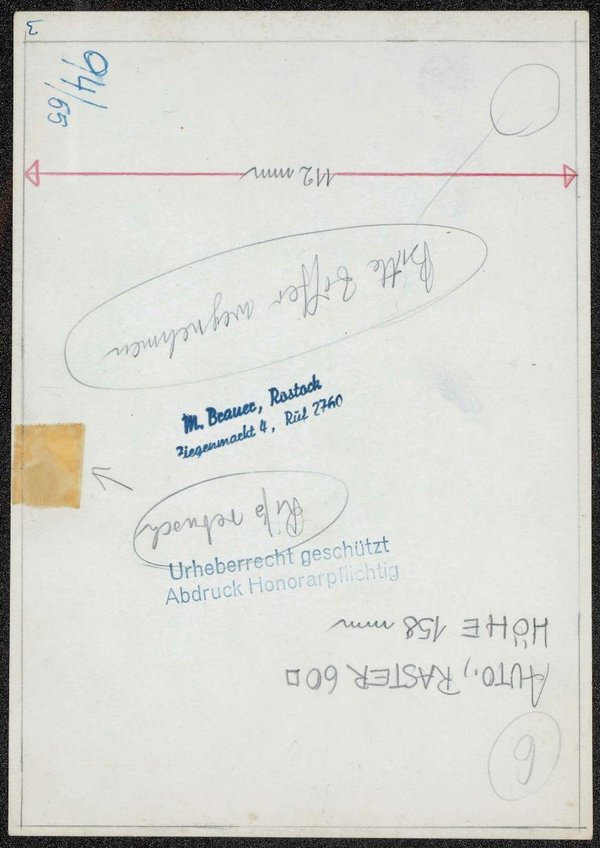 3
94/55
112 mm
Bitte Ziffer wegnehmen
M. Brauer, Rostock
Ziegenmarkt 4, Ruf
Riß retusch
Urheberrecht geschützt
Abdruck Honorarpflichtig
AUTO., RASTER 60 □
HÖHE 158 mm
6